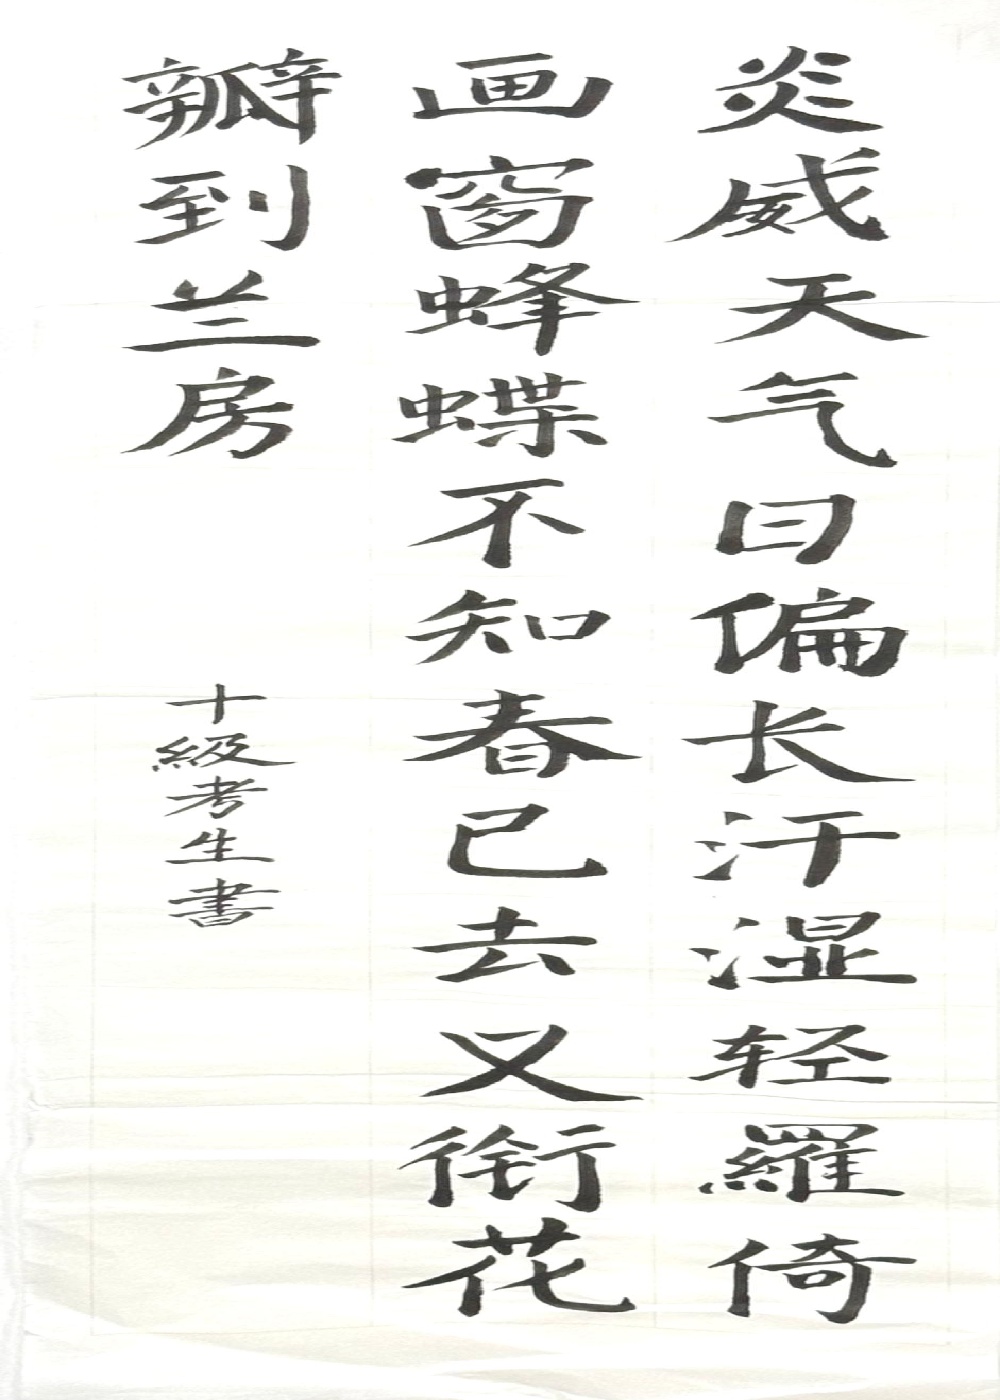 炎威天气日偏长汗湿轻羅倚
画窗蜂蝶不知春已去又衔花
瓣到兰房
十級考生書